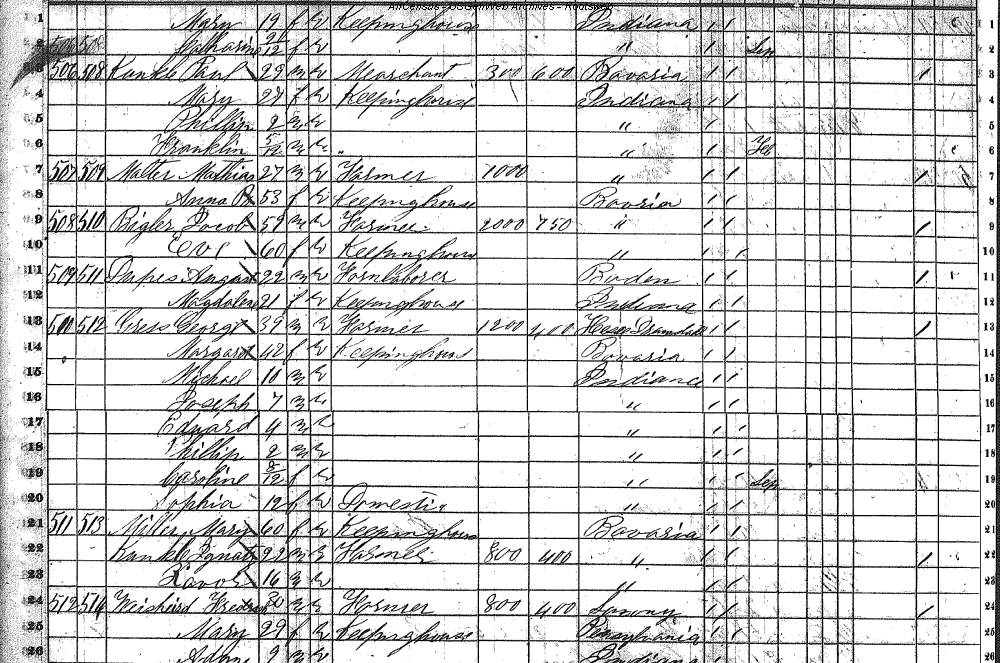 AllCensus - USGenWeb Archives - Rootsweb
1 Mary 19 f W Keepinghouse Indiana / / 1
2 Catharine /12 f W " / Sep 2
3 506 508 Kunkle Paul 29 m W Mearchant 300 600 Bavaria / / / 3
4 Mary 27 f W Keepinghouse Indiana / / 4
5 Phillip 2 m W " / 5
6 Franklin 5/12 m W " / Feb 6
7 507 509 Matter Mathias 27 m W Farmer 1000 " / / 7
8 Anna 53 f W Keepinghouse Bavaria / / 8
9 508 510 Bigler Jacob 59 m W Farmer 2000 750 " / / / 9
10 Eve 60 f W Keepinghouse " / / 10
11 509 511 August 22 m W Farmlaborer Baden / / / 11
12 Magdalena 21 f W Keepinghouse Indiana 12
13 510 512 Gress George 39 m W Farmer 1200 400 / / / 13
14 Margaret 42 f W Keepinghouse Bavaria / / 14
15 Michael 10 m W Indiana / / 15
16 Joseph 7 m W " / / 16
17 Edward 4 m W " / / 17
18 Phillip 2 m W " / / 18
19 Caroline 8/12 f W " / / Sep 19
20 Sophia 12 f W Domestic " / / 20
21 511 513 Miller Mary 60 f W Keepinghouse Bavaria / / 21
22 Kunkle Ignatz 22 m W Farmer 800 400 " / / / 22
23 16 m W " / / 23
24 512 514 30 m W Farmer 800 400 Saxony / / / 24
25 Mary 29 f W Keepinghouse Pensylvania / / 25
26 Adam 9 m W Indiana 26